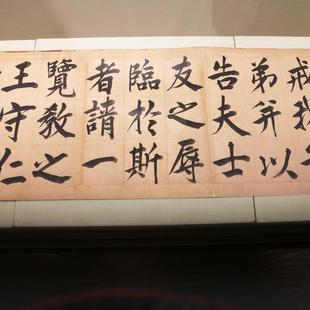 戒我子
弟并以
告夫士
友之辱
臨於斯
者請一
覽教之
王守仁